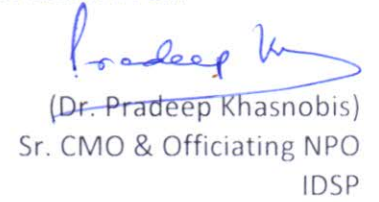 Pradeep K
(Dr. Pradeep Khasnobis)
Sr. CMO & Officiating NPO
IDSP